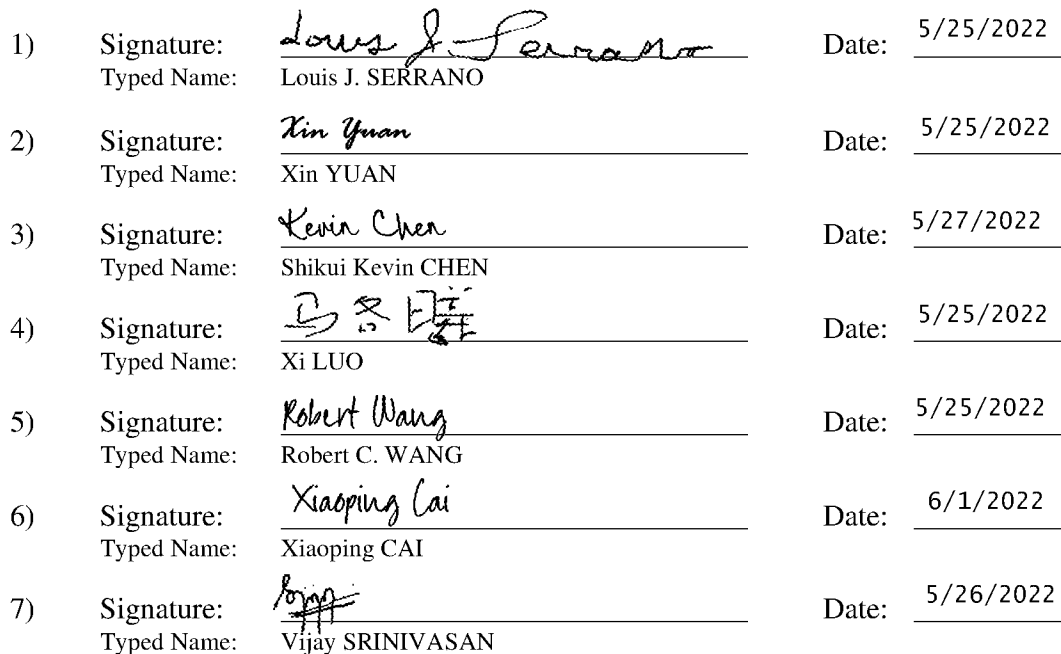 1) Signature: Louis J. Serrano Date: 5/25/2022
Typed Name: Louis J. SERRANO
2) Signature: Xin Yuan Date: 5/25/2022
Typed Name: Xin YUAN
3) Signature: Kevin Chen Date: 5/27/2022
Typed Name: Shikui Kevin CHEN
4) Signature: Date: 5/25/2022
Typed Name: Xi LUO
5) Signature: Robert Wang Date: 5/25/2022
Typed Name: Robert C. WANG
6) Signature: Xiaoping Cai Date: 6/1/2022
Typed Name: Xiaoping CAI
7) Signature: Date: 5/26/2022
Typed Name: Vijay SRINIVASAN